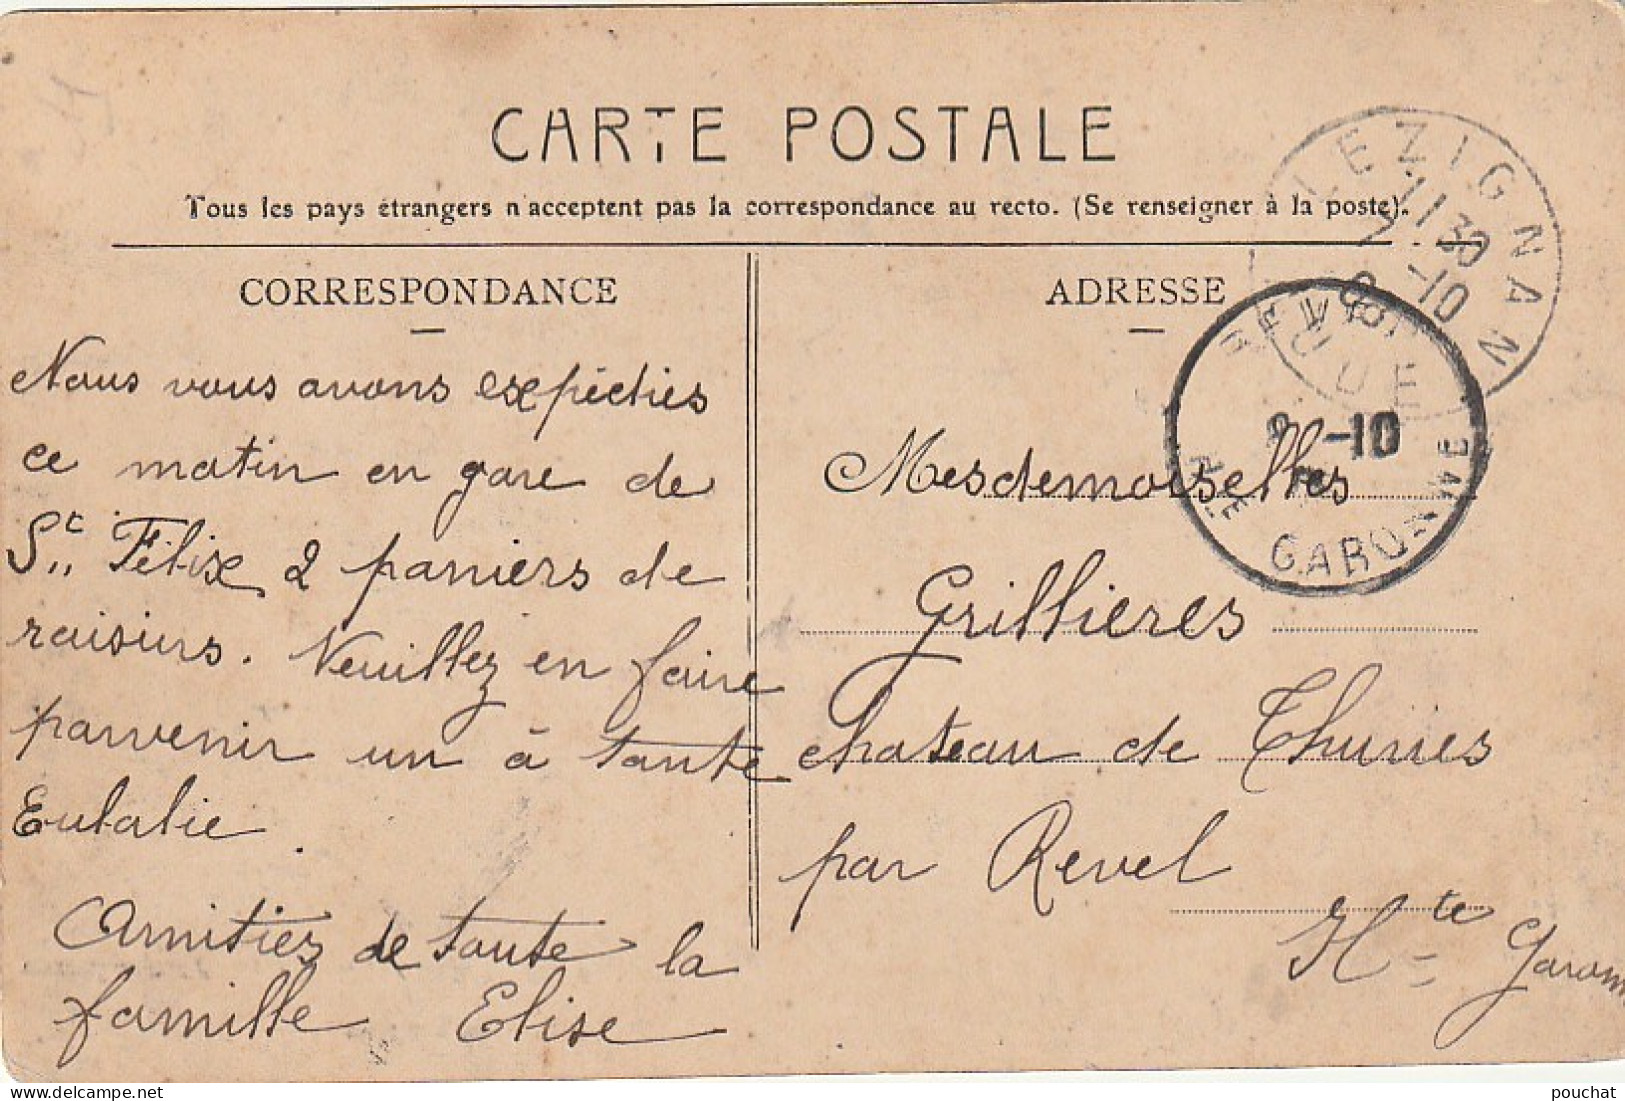 CARTE POSTALE
Tous les pays étrangers n'acceptent pas la correspondance au recto. (Se renseigner à la poste).
CORRESPONDANCE
Nous vous avons expédiés
ce matin en gare de
St. Félix 2 paniers de
raisins. Veuillez en faire
parvenir un à tante
Eulalie.
Amitiés de toute la
famille Elise
ADRESSE
Mesdemoiselles
Grillières
chateau de Thuries
par Revel
Hte Garonn
LEZIGNAN
11 30
8 -10
AUDE
REVEL
8 -10
HTE GARONNE
pouchat